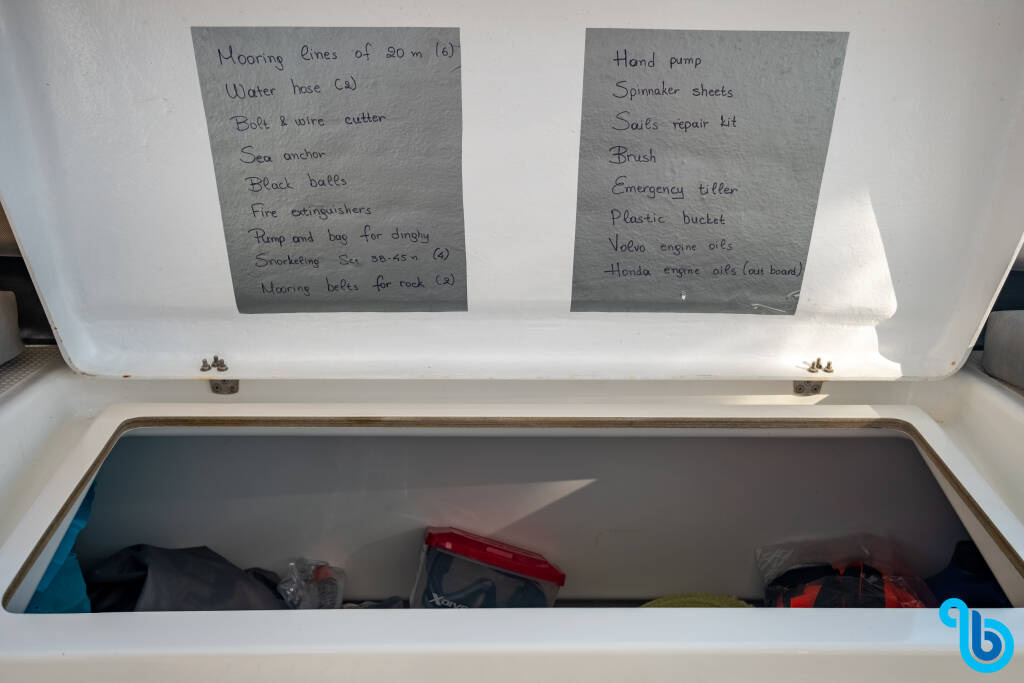 Mooring lines of 20 m (6)
Water hose (2)
Bolt & wire cutter
Sea anchor
Black balls
Fire extinguishers
Pump and bag for dinghy
Snorkeling Set 38-45 n (4)
Mooring belts for rock (2)
Hand pump
Spinnaker sheets
Sails repair kit
Brush
Emergency tiller
Plastic bucket
Volvo engine oils
Honda engine oils (out board)
b